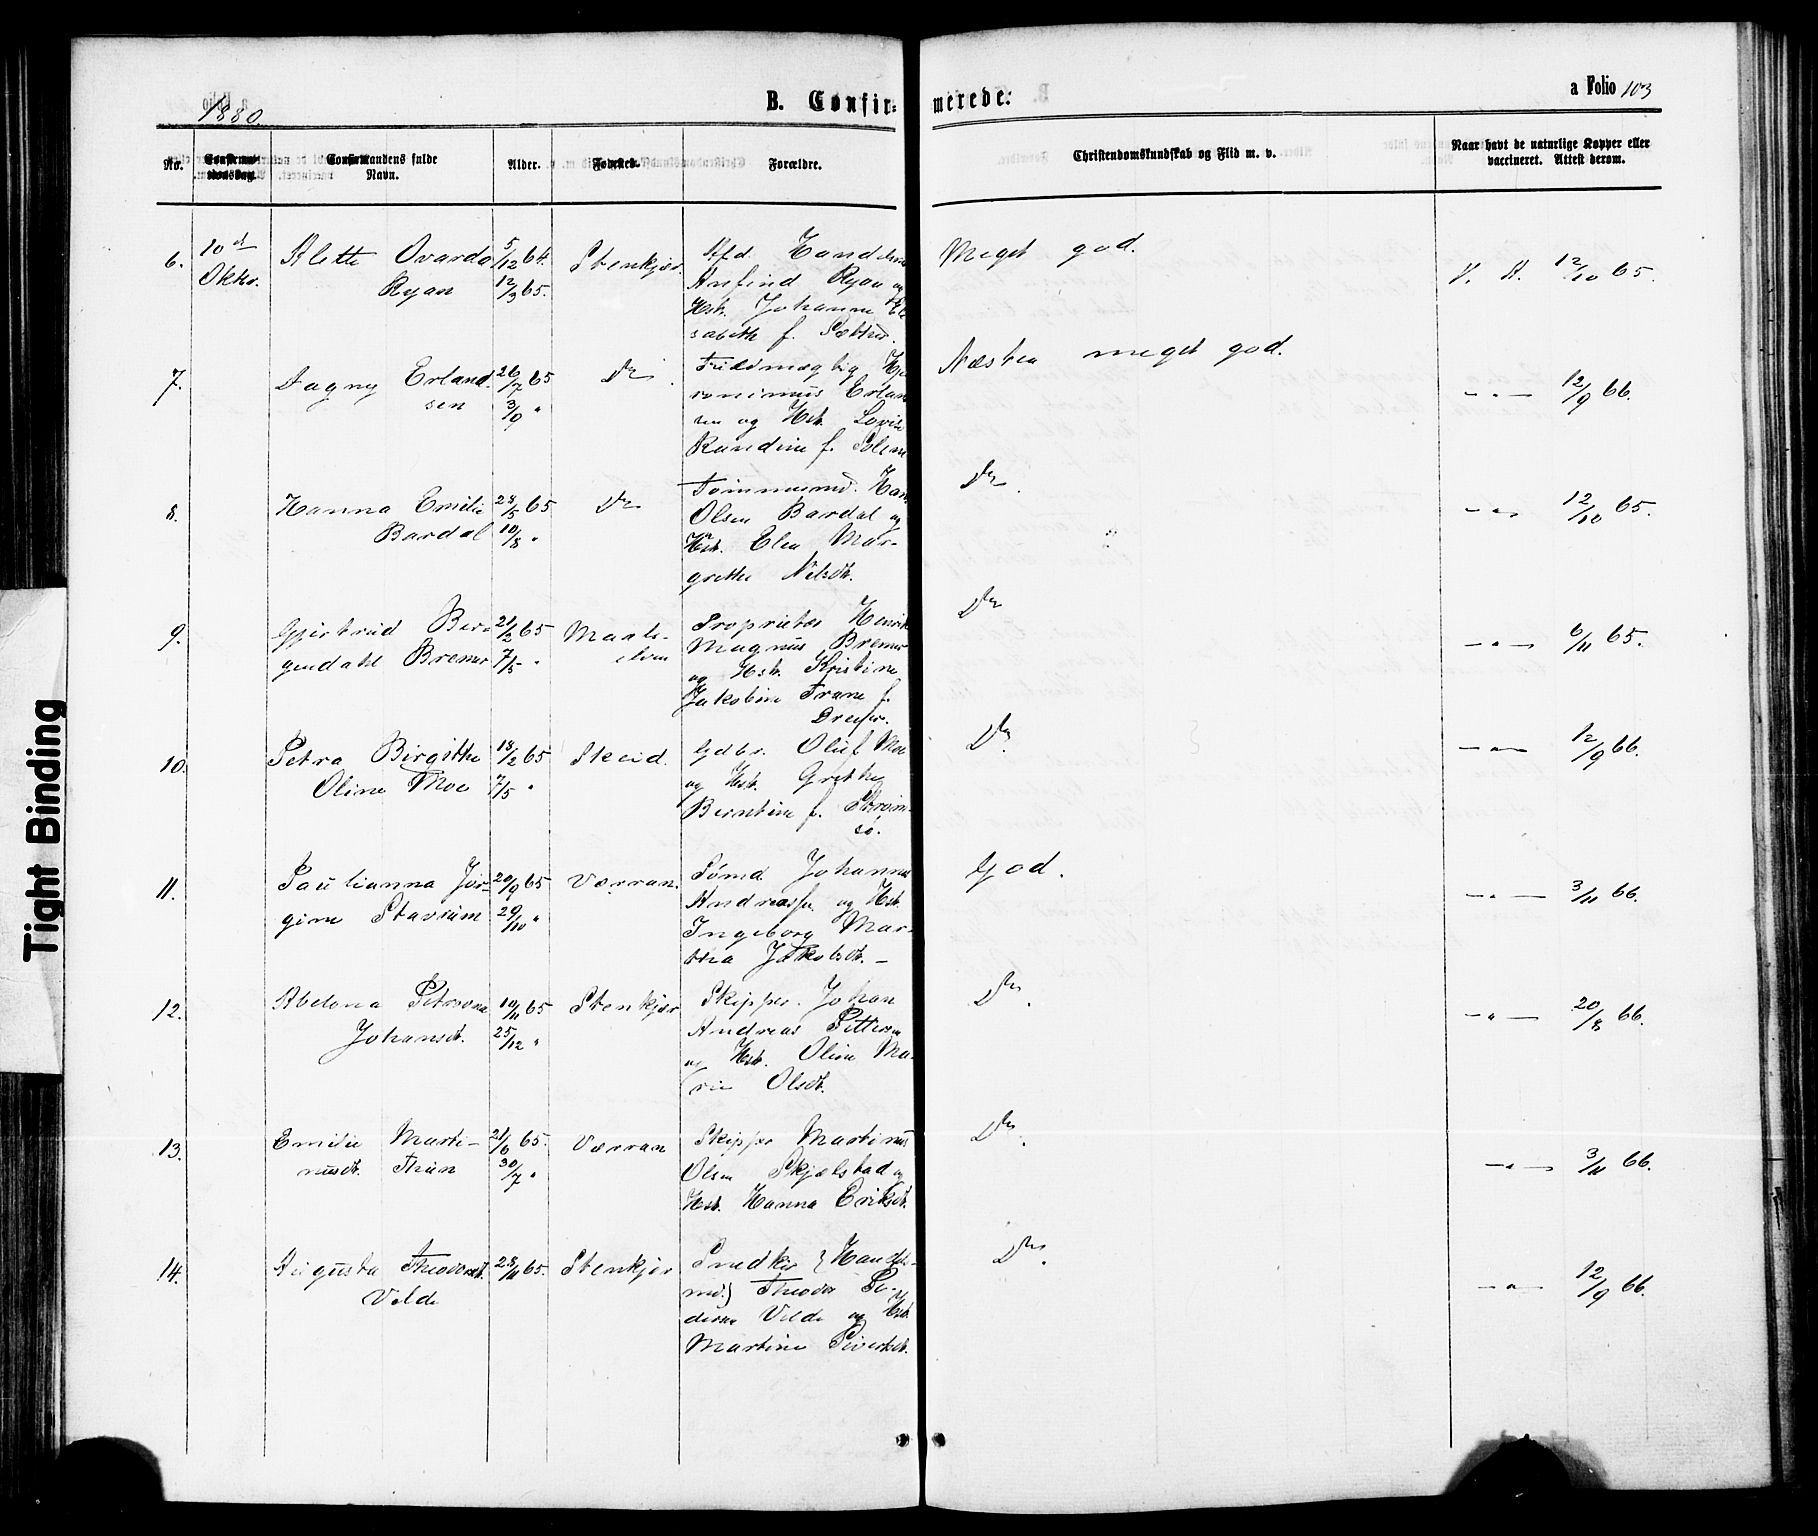 Tight Binding
1880.
B. Confir-
merede:
a Folio 103
No.
Confirma-
tionsdag.
Confirmandens fulde
Navn.
Alder.
Fødested.
Forældre.
Christendomskundskab og Flid m. v.
Naar havt de naturlige Kopper eller
vaccineret. Attest derom.
6.
10d
Oktbr.
Alette Ovardo
Ryan
5/12 64.
12/3 65.
Stenkjær.
Afd. Handelsm
Anfind Ryan og
Hst. Johanna Eli
sabeth f. Sæther.
Meget god.
V. A. 12/10 65.
7.
Dagny Erland
sen
26/7 65
3/9 "
Do
Fuldmægtig Hie
ronimus Erlan
sen og Hst. Lovise
Randine f. Solem
Næsten meget god.
— " — 12/9 66.
8.
Hanna Emilie
Bardal
28/5 65
10/8 "
Do
Tømmermd. Hans
Olsen Bardal og
Hst. Elen Mar-
grethe Nilsdt.
Do.
— " — 12/10 65.
9.
Gjertrud Ber-
gendahl Bremer
21/2 65
7/5 "
Maals-
elven
Proprietær Henrik
Magnus Bremer
og Hst. Kristine
Jakobine Trane f.
Dreyer.
Do
— " — 6/11 65.
10.
Petra Birgitte
Oline Moe
18/2 65
7/5 "
Skeid.
Gdbr. Oluf Moe
og Hst. Grethe
Berntine f. Strøm-
sø.
Do.
— " — 12/9 66.
11.
Paulianna Jør-
gine Stavrum
20/9 65
29/10 "
Værran.
Sømd. Johannes
Andreass. og Hst.
Ingeborg Mar-
tha Jakobsdt. —
God.
— " — 3/11 66.
12.
Abelona Petrona
Johansdt.
10/11 65
25/12 "
Stenkjær
Skipper. Johan
Andreas Pettersen
og Hst. Oline Ma-
rie Olsdt.
Do.
— " — 20/8 66.
13.
Emilie Marti-
nusdt. Thun
21/6 65.
30/7 "
Værran
Skipper Martinus
Olsen Skjælstad og
Hst. Hanna Eriksdt.
Do.
— " — 3/11 66.
14.
Augusta Theodorsdt.
Velde
28/11 65.
Stenkjær
Snedker (Handels-
md.) Theodor Pe-
dersen Velde og Hst.
Martine Sivertsdt.
Do.
— " — 12/9 66.